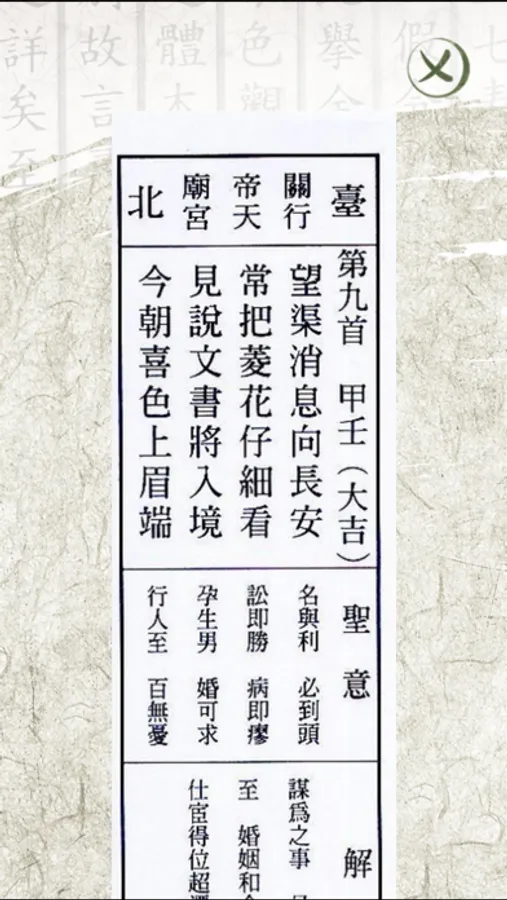 臺
關行
帝天
廟宮
北
第九首 甲壬(大吉)
望渠消息向長安
常把菱花仔細看
見說文書將入境
今朝喜色上眉端
聖意
名與利 必到頭
訟即勝 病即瘳
孕生男 婚可求
行人至 百無憂
解
謀爲之事
至 婚姻和
仕宦得位超